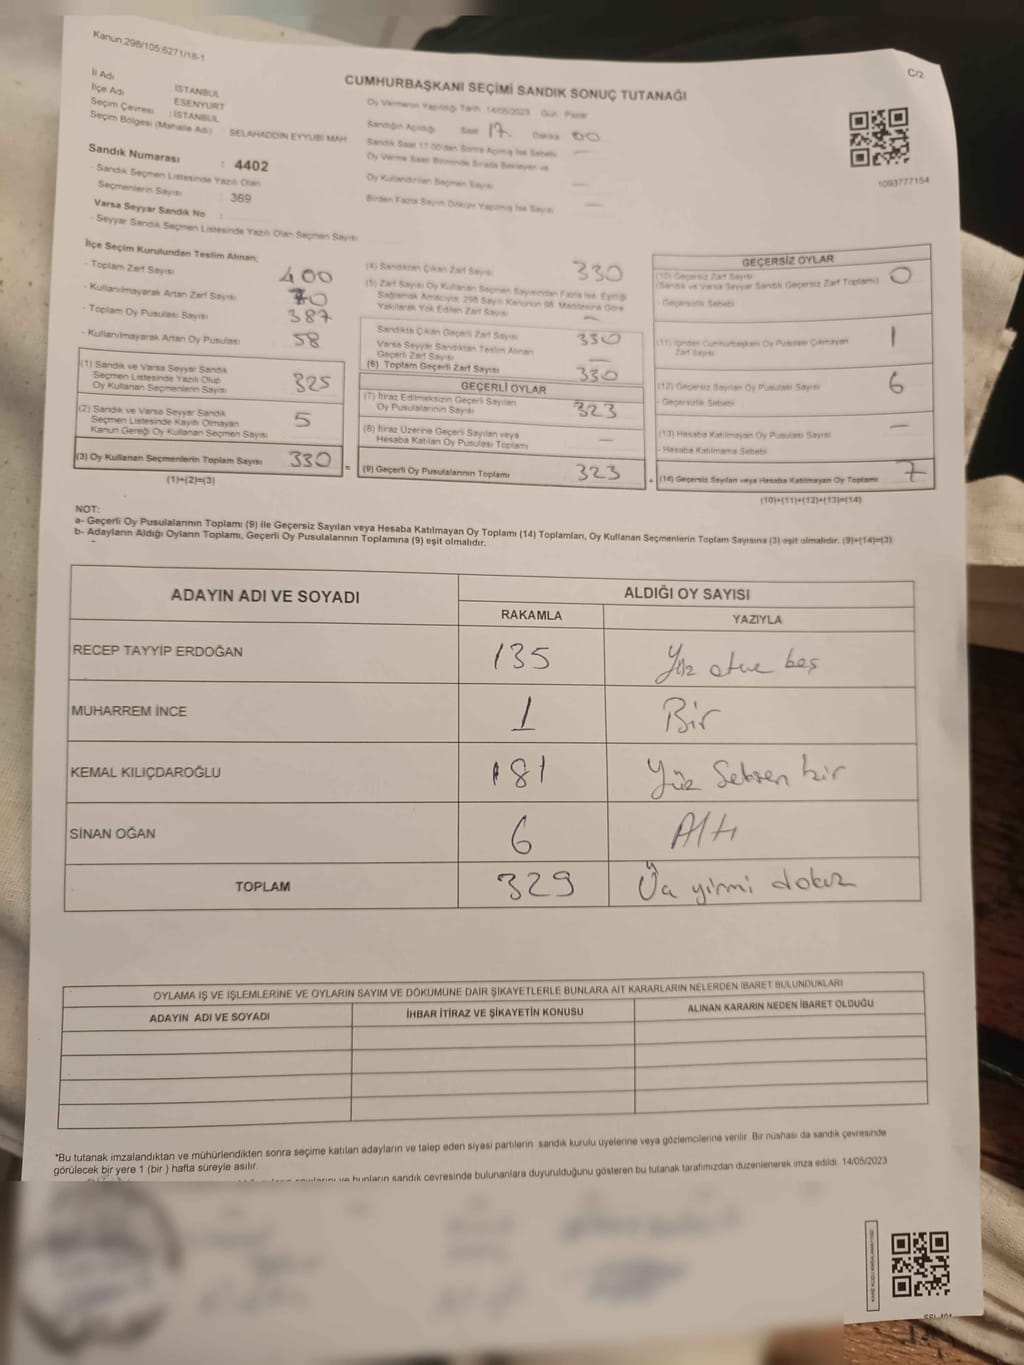 Kanun:298/105;6271/18-1
C/2
CUMHURBAŞKANI SEÇİMİ SANDIK SONUÇ TUTANAĞI
İl Adı : İSTANBUL
İlçe Adı : ESENYURT
Seçim Çevresi : İSTANBUL
Seçim Bölgesi (Mahalle Adı) SELAHADDİN EYYUBİ MAH
Sandık Numarası : 4402
- Sandık Seçmen Listesinde Yazılı Olan
Seçmenlerin Sayısı : 369
Varsa Seyyar Sandık No
- Seyyar Sandık Seçmen Listesinde Yazılı Olan Seçmen Sayısı
Oy Vermenin Yapıldığı Tarih :14/05/2023 Gün: Pazar
Sandığın Açıldığı Saat 17 Dakika 00
Sandık Saat 17:00'den Sonra Açılmış İse Sebebi —
Oy Verme Saati Bitiminde Sırada Bekleyen ve
Oy Kullandırılan Seçmen Sayısı —
Birden Fazla Sayım Döküm Yapılmış İse Sayısı —
1093777154
İlçe Seçim Kurulundan Teslim Alınan;
- Toplam Zarf Sayısı 400
- Kullanılmayarak Artan Zarf Sayısı 70
- Toplam Oy Pusulası Sayısı 387
- Kullanılmayarak Artan Oy Pusulası 58
(1) Sandık ve Varsa Seyyar Sandık
Seçmen Listesinde Yazılı Olup
Oy Kullanan Seçmenlerin Sayısı 325
(2) Sandık ve Varsa Seyyar Sandık
Seçmen Listesinde Kayıtlı Olmayan
Kanun Gereği Oy Kullanan Seçmen Sayısı 5
(3) Oy Kullanan Seçmenlerin Toplam Sayısı 330
(1)+(2)=(3)
=
(4) Sandıktan Çıkan Zarf Sayısı 330
(5) Zarf Sayısı Oy Kullanan Seçmen Sayısından Fazla İse, Eşitliği
Sağlamak Amacıyla; 298 Sayılı Kanunun 98. Maddesine Göre
Yakılarak Yok Edilen Zarf Sayısı —
Sandıkta Çıkan Geçerli Zarf Sayısı 330
Varsa Seyyar Sandıktan Teslim Alınan
Geçerli Zarf Sayısı —
(6) Toplam Geçerli Zarf Sayısı 330
GEÇERLİ OYLAR
(7) İtiraz Edilmeksizin Geçerli Sayılan
Oy Pusulalarının Sayısı 323
(8) İtiraz Üzerine Geçerli Sayılan veya
Hesaba Katılan Oy Pusulası Toplamı —
(9) Geçerli Oy Pusulalarının Toplamı 323
+
GEÇERSİZ OYLAR
(10) Geçersiz Zarf Sayısı
(Sandık ve Varsa Seyyar Sandık Geçersiz Zarf Toplamı) 0
- Geçersizlik Sebebi
(11) İçinden Cumhurbaşkanı Oy Pusulası Çıkmayan
Zarf Sayısı 1
(12) Geçersiz Sayılan Oy Pusulası Sayısı 6
- Geçersizlik Sebebi
(13) Hesaba Katılmayan Oy Pusulası Sayısı —
- Hesaba Katılmama Sebebi
(14) Geçersiz Sayılan veya Hesaba Katılmayan Oy Toplamı 7
(10)+(11)+(12)+(13)=(14)
NOT:
a- Geçerli Oy Pusulalarının Toplamı (9) ile Geçersiz Sayılan veya Hesaba Katılmayan Oy Toplamı (14) Toplamları, Oy Kullanan Seçmenlerin Toplam Sayısına (3) eşit olmalıdır. (9)+(14)=(3)
b- Adayların Aldığı Oyların Toplamı, Geçerli Oy Pusulalarının Toplamına (9) eşit olmalıdır.
ADAYIN ADI VE SOYADI
ALDIĞI OY SAYISI
RAKAMLA YAZIYLA
RECEP TAYYİP ERDOĞAN 135 Yüz otuz beş
MUHARREM İNCE 1 Bir
KEMAL KILIÇDAROĞLU 181 Yüz Seksen bir
SİNAN OĞAN 6 Altı
TOPLAM 329 Üç yirmi dokuz
OYLAMA İŞ VE İŞLEMLERİNE VE OYLARIN SAYIM VE DÖKÜMÜNE DAİR ŞİKAYETLERLE BUNLARA AİT KARARLARIN NELERDEN İBARET BULUNDUKLARI
ADAYIN ADI VE SOYADI İHBAR İTİRAZ VE ŞİKAYETİN KONUSU ALINAN KARARIN NEDEN İBARET OLDUĞU
*Bu tutanak imzalandıktan ve mühürlendikten sonra seçime katılan adayların ve talep eden siyasi partilerin sandık kurulu üyelerine veya gözlemcilerine verilir. Bir nüshası da sandık çevresinde
görülecek bir yere 1 (bir ) hafta süreyle asılır.
ve bunların sandık çevresinde bulunanlara duyurulduğunu gösteren bu tutanak tarafımızdan düzenlenerek imza edildi. 14/05/2023